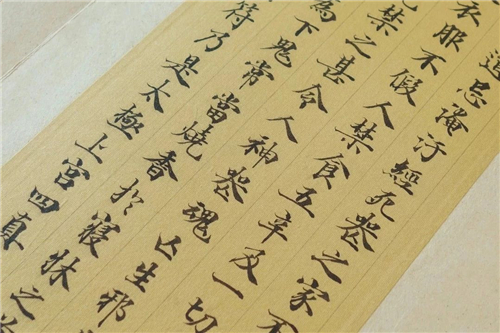 道忌淹汙經死喪之家不
衣服不假人禁食五辛及一切
禁之甚令人神喪魂亡生邪
為下鬼常當燒香於寢牀之
符乃是太極上宮四真